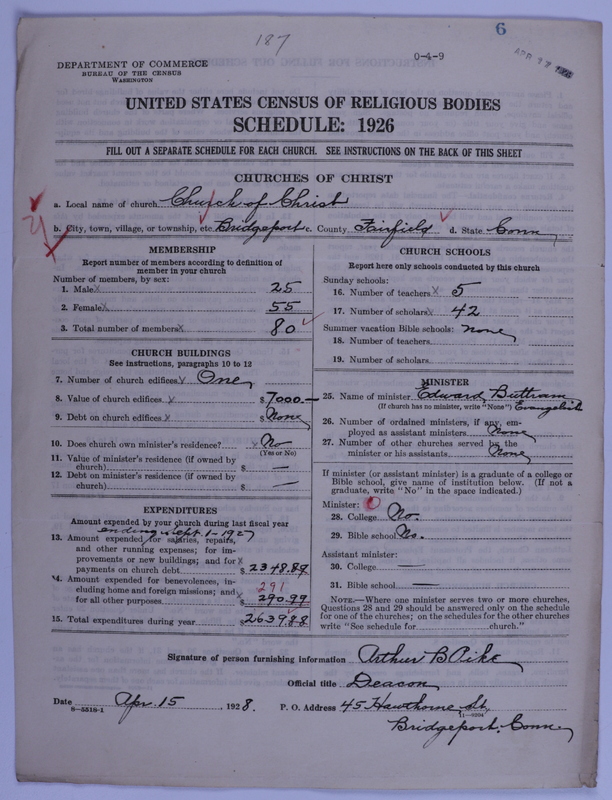 187
0-4-9
6
APR 17 1928
DEPARTMENT OF COMMERCE
BUREAU OF THE CENSUS
WASHINGTON
UNITED STATES CENSUS OF RELIGIOUS BODIES
SCHEDULE: 1926
FILL OUT A SEPARATE SCHEDULE FOR EACH CHURCH. SEE INSTRUCTIONS ON THE BACK OF THIS SHEET
CHURCHES OF CHRIST
a. Local name of church Church of Christ
b. City, town, village, or township, etc. Bridgeport c. County Fairfield d. State Conn
MEMBERSHIP
Report number of members according to definition of
member in your church
Number of members, by sex:
1. Male 25
2. Female 55
3. Total number of members 80
CHURCH BUILDINGS
See instructions, paragraphs 10 to 12
7. Number of church edifices One
8. Value of church edifices $7000.—
9. Debt on church edifices $None
10. Does church own minister's residence? No
(Yes or No)
11. Value of minister's residence (if owned by
church) $ —
12. Debt on minister's residence (if owned by
church) $ —
EXPENDITURES
Amount expended by your church during last fiscal year
ending Sept. 1-1927
13. Amount expended for salaries, repairs,
and other running expenses; for im-
provements or new buildings; and for
payments on church debt $2348.89
14. Amount expended for benevolences, in-
cluding home and foreign missions; and 291
for all other purposes $290.99
15. Total expenditures during year $2639.88
CHURCH SCHOOLS
Report here only schools conducted by this church
Sunday schools:
16. Number of teachers 5
17. Number of scholars 42
Summer vacation Bible schools: None
18. Number of teachers
19. Number of scholars
MINISTER
25. Name of minister Edward Buttram
(If church has no minister, write "None") Evangelist
26. Number of ordained ministers, if any, em-
ployed as assistant ministers None
27. Number of other churches served by the
minister or his assistants None
If minister (or assistant minister) is a graduate of a college or
Bible school, give name of institution below. (If not a
graduate, write "No" in the space indicated.)
Minister: 0
28. College No.
29. Bible school No.
Assistant minister:
30. College —
31. Bible school —
NOTE.—Where one minister serves two or more churches,
Questions 28 and 29 should be answered only on the schedule
for one of the churches; on the schedules for the other churches
write "See schedule for church."
Signature of person furnishing information Arthur B Pike
Official title Deacon
Date Apr. 15, 1928. P. O. Address 45 Hawthorne St.
8-5518-1 11-9204
Bridgeport, Conn